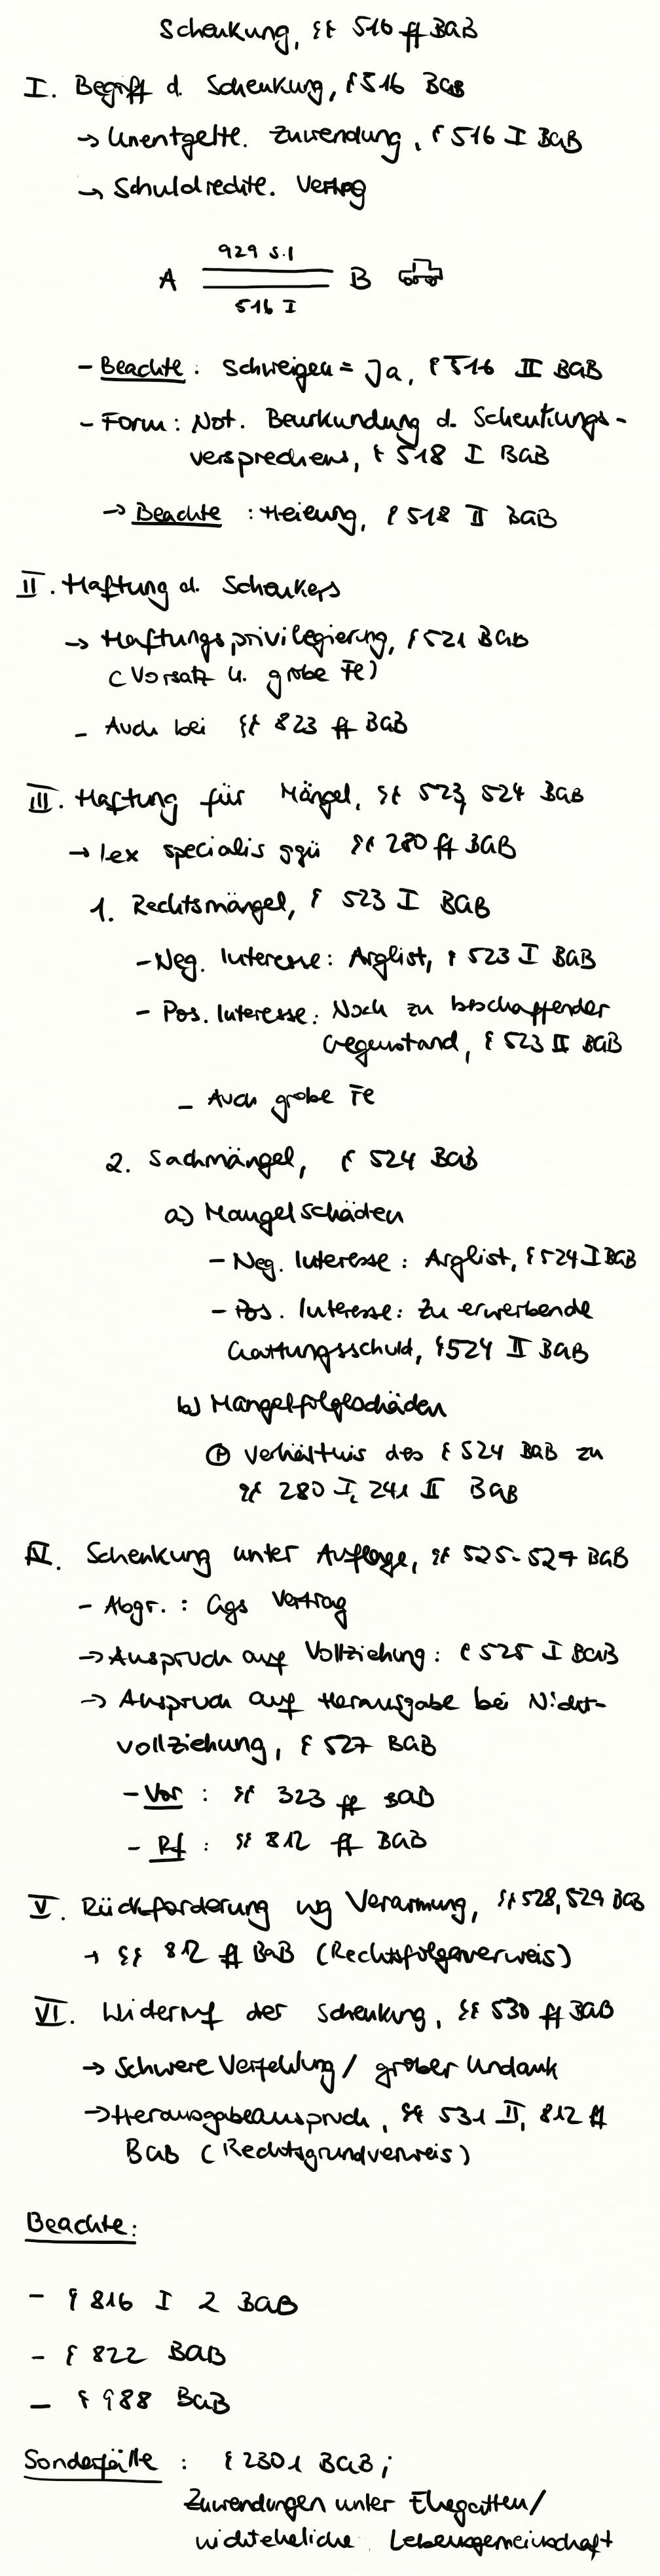 Schenkung, §§ 516 ff BGB
I. Begriff d. Schenkung, § 516 BGB
→ Unentgeltl. Zuwendung, § 516 I BGB
→ Schuldrechtl. Vertrag
929 S.1
A B
516 I
- Beachte: Schweigen = Ja, § 516 II BGB
- Form: Not. Beurkundung d. Schenkungs-
versprechens, § 518 I BGB
→ Beachte: Heilung, § 518 II BGB
II. Haftung d. Schenkers
→ Haftungsprivilegierung, § 521 BGB
(Vorsatz u. grobe Fe)
- Auch bei §§ 823 ff BGB
III. Haftung für Mängel, §§ 523, 524 BGB
→ lex specialis ggü §§ 280 ff BGB
1. Rechtsmängel, § 523 I BGB
- Neg. Interesse: Arglist, § 523 I BGB
- Pos. Interesse: Noch zu beschaffender
Gegenstand, § 523 II BGB
- Auch grobe Fe
2. Sachmängel, § 524 BGB
a) Mangelschäden
- Neg. Interesse: Arglist, § 524 I BGB
- Pos. Interesse: Zu erwerbende
Gattungsschuld, § 524 II BGB
b) Mangelfolgeschäden
Ⓟ Verhältnis des § 524 BGB zu
§§ 280 I, 241 II BGB
IV. Schenkung unter Auflage, §§ 525-527 BGB
- Abgr.: Ggs Vertrag
→ Anspruch auf Vollziehung: § 525 I BGB
→ Anspruch auf Herausgabe bei Nicht-
vollziehung, § 527 BGB
- Vor: §§ 323 ff BGB
- Rf: §§ 812 ff BGB
V. Rückforderung wg Verarmung, §§ 528, 529 BGB
→ §§ 812 ff BGB (Rechtsfolgenverweis)
VI. Widerruf der Schenkung, §§ 530 ff BGB
→ Schwere Verfehlung / grober Undank
→ Herausgabeanspruch, §§ 531 II, 812 ff
BGB (Rechtsgrundverweis)
Beachte:
- § 816 I 2 BGB
- § 822 BGB
- § 988 BGB
Sonderfälle: § 2301 BGB;
Zuwendungen unter Ehegatten/
nichteheliche Lebensgemeinschaft